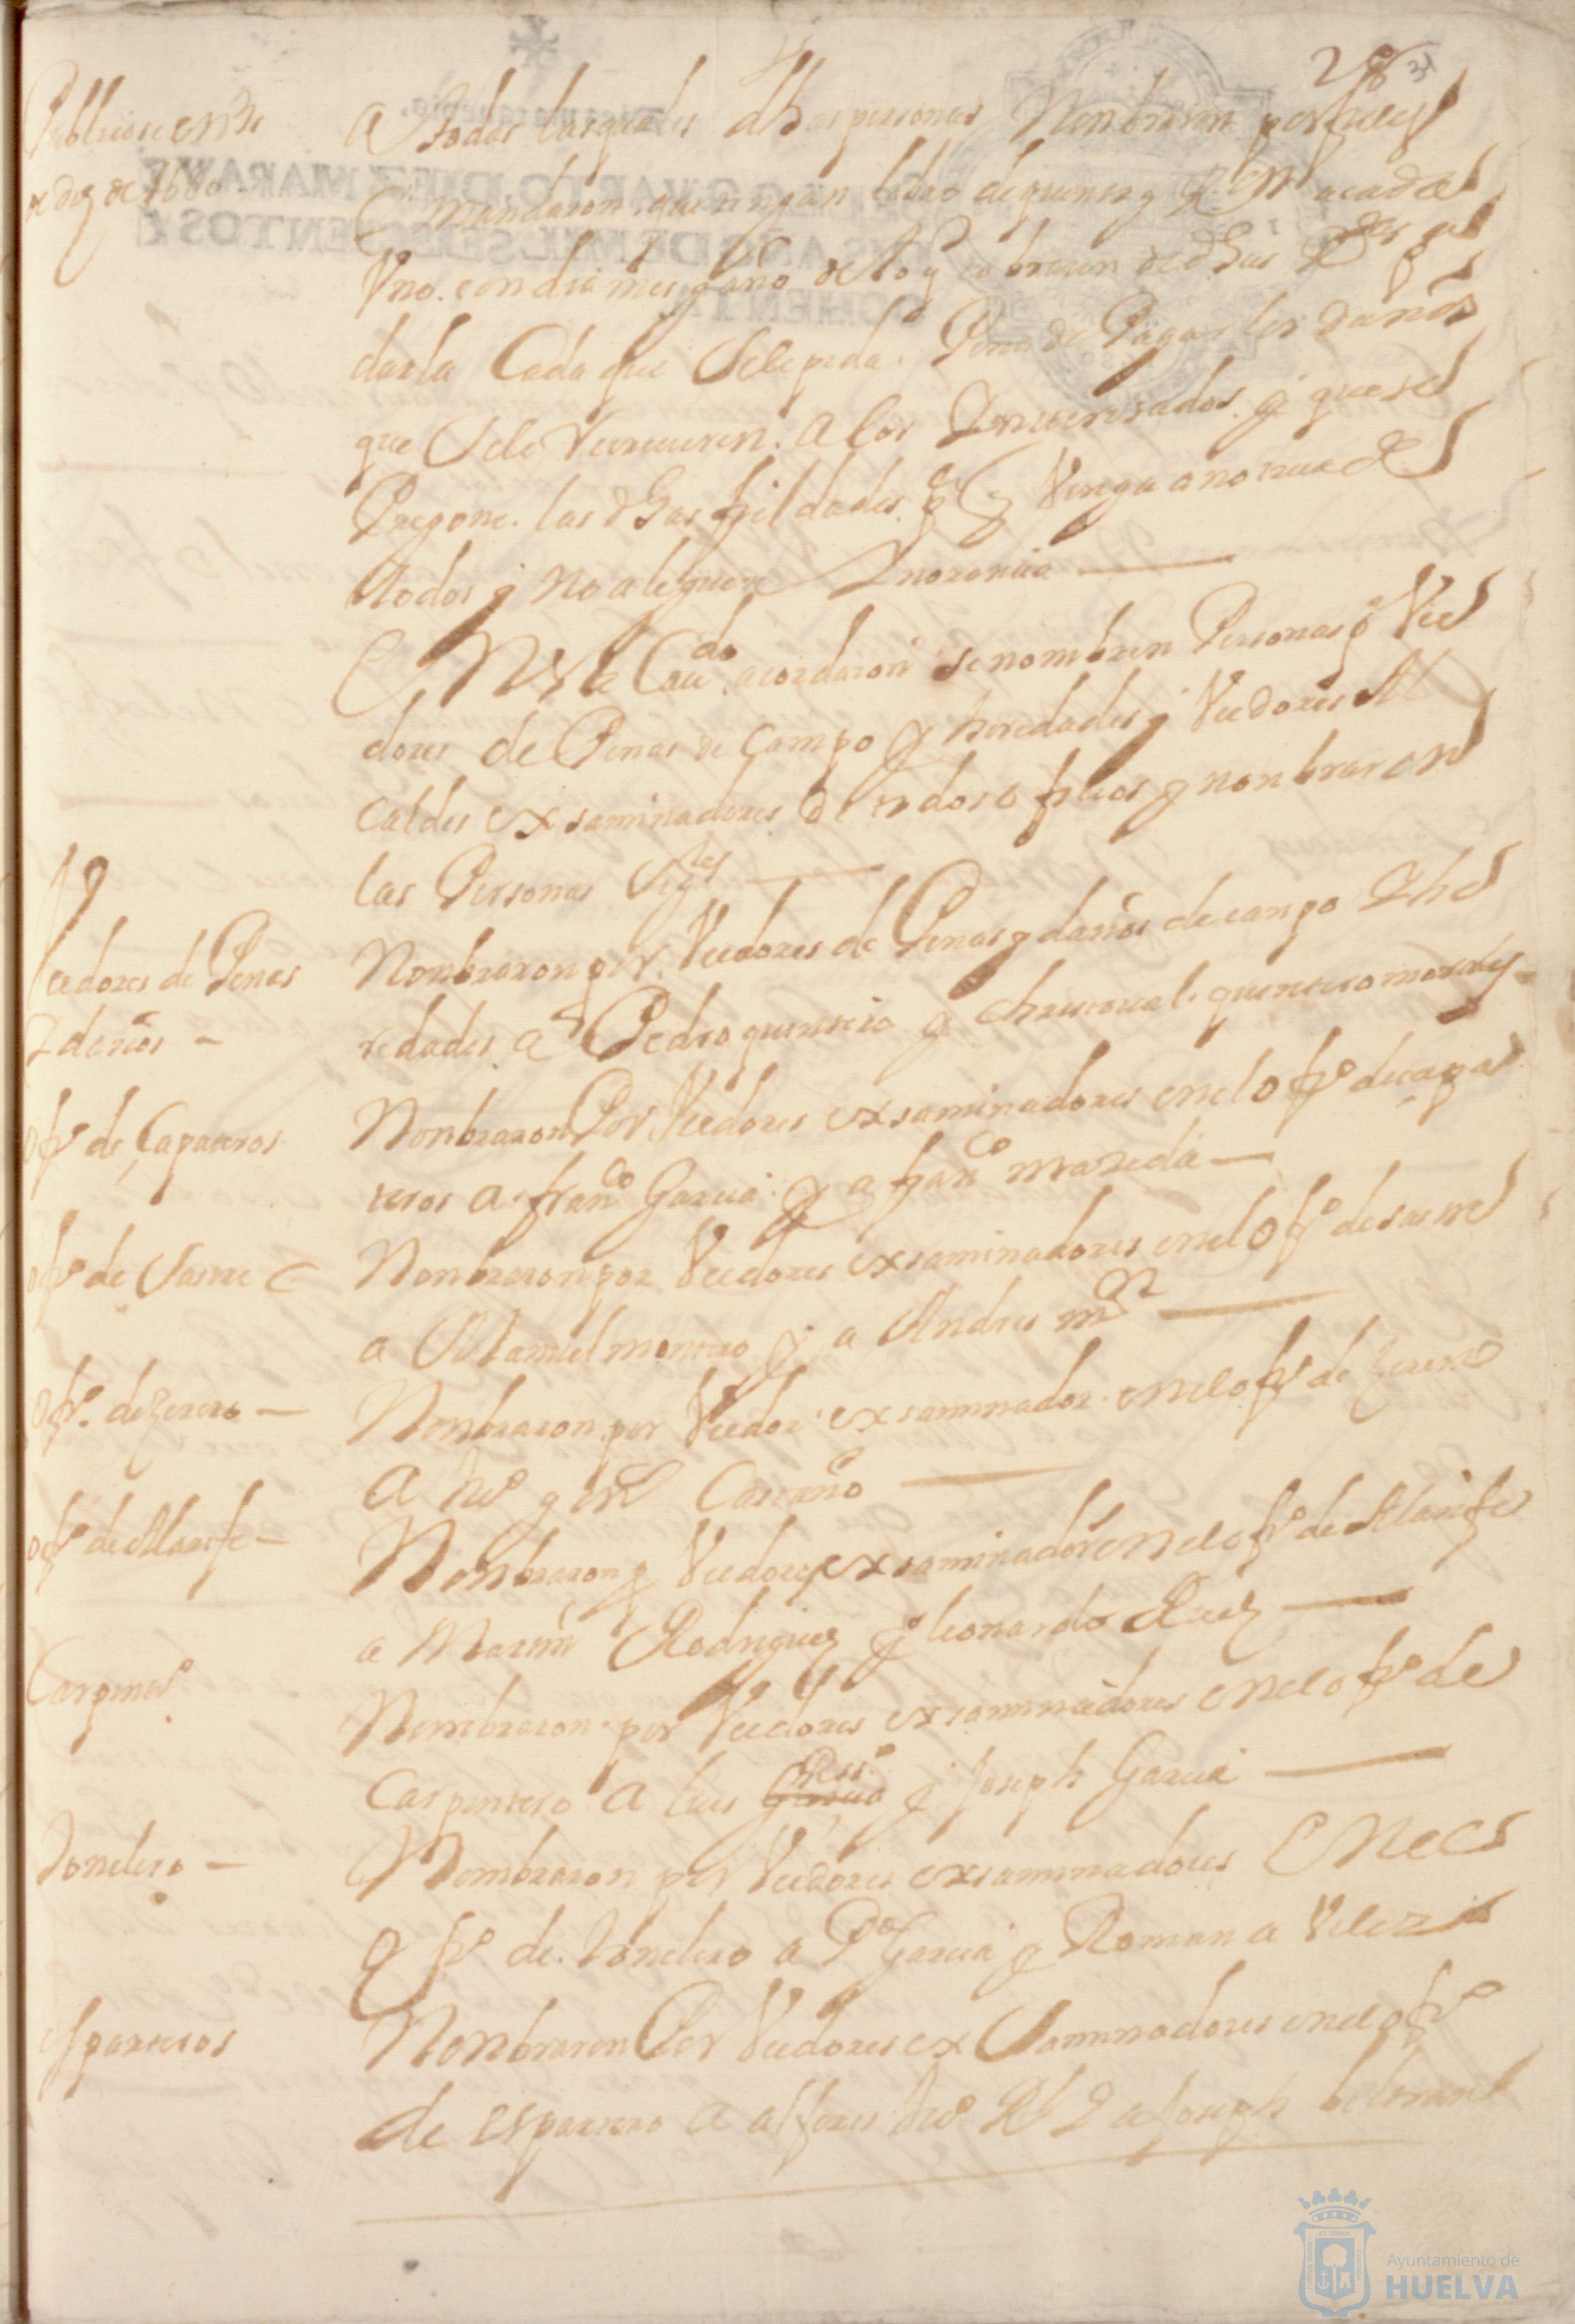 28
31
Publicose en 31
de diz de 1680
A todas las quales dhas personas Nonbraron por fieles
y mandaron que tengan libro de quenta y rrn a cada
Uno. con dia mes y año de lo q cobraren de dhas
darla Cada que Se le pida. Pena de Pagar los daños
que Se le Recrecieren. a los Ynteresados. y que se
Pregone. las dhas fieldades pa q Venga a noticia de
todos y no aleguen Ynorancia
En Este Caudo acordaron se nombren Personas pa Vee
dores de Penas de campo y heredades y Veedores Al
caldes exsaminadores de todos ofisios y nonbraron
las Personas Sigtes
Veedores de Penas
Y daños
Nonbraron por Veedores de Penas y daños de canpo Y he
redades. a Pedro quintero y christoual. quintero morales
ofo de Çapateros
Nonbraron Por Veedores exsaminadores en el ofo de çapa
teros a franco Garcia. y a franco
ofo de Sastre
Nonbraron por Veedores exsaminadores en el ofo de sastre
a Manuel montero y a Andres mrn
ofo. de Zerero
Nonbraron por Veedor exsaminador en el ofo de Zerero
A Juo
ofo de Alarife
Nonbraron p Veedores exsaminadores en el ofo de Alarife
a Martin Rodriguez y leonardo Ruiz
Carpinto
Nombraron por Veedores exsaminadores en el ofo de
Carpintero a luis Garcia y Joseph Garcia
tonelero
Nombraron por Veedores exsaminadores En el
ofo de. tonelero a Po Garcia y Roman a Velez
esparteros
Nonbraron Por Veedores exSaminadores en el ofo
de espartero a alferes Juo Y a Joseph beltran
Ayuntamiento de
HUELVA